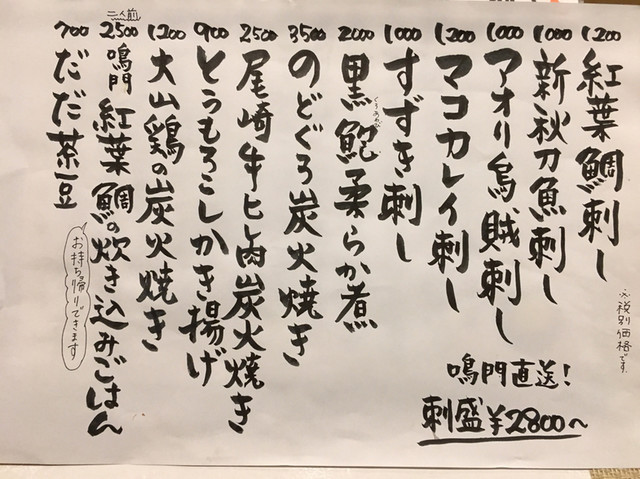 1200 紅葉鯛刺し
1000 新秋刀魚刺し
1000 アオリ烏賊刺し
1200 マコカレイ刺し
1000 すずき刺し
2000 黒鮑柔らか煮
くろあわび
3500 のどぐろ炭火焼き
2500 尾崎牛ヒレ肉炭火焼き
900 とうもろこしかき揚げ
1200 大山鶏の炭火焼き
二人前
2500 鳴門紅葉鯛の炊き込みごはん
お持ち帰りできます
700 だだ茶豆
※税別価格です。
鳴門直送!
刺盛¥2800〜